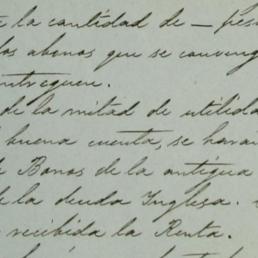 la cantidad de —
los abonos que se
entreguen.
de la mitad de utilidad
buena cuenta, se
Bonos de la antigua
de la deuda Inglesa.
recibida la Renta.